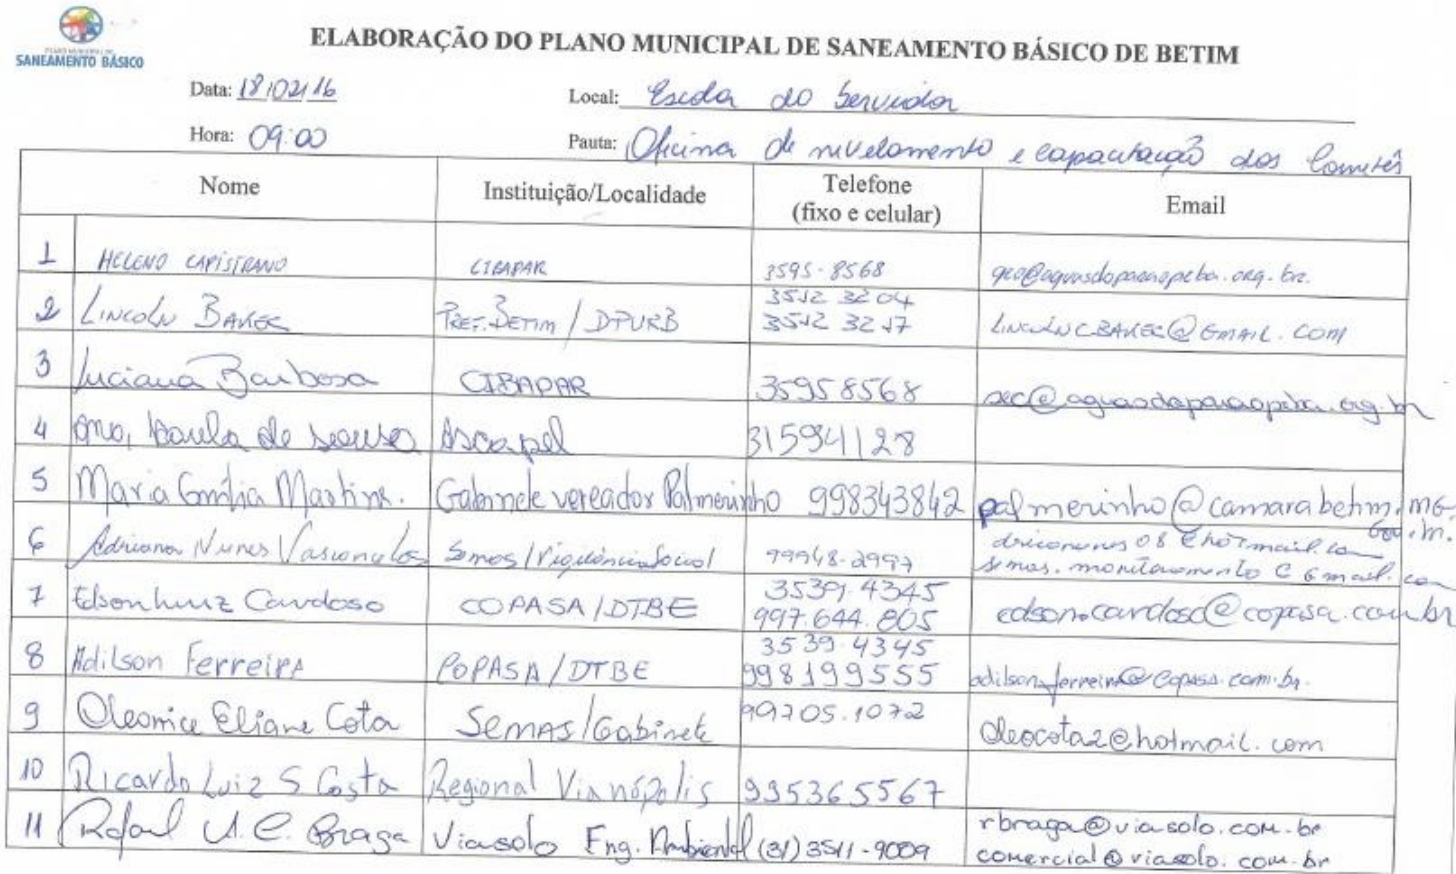 PLANO MUNICIPAL DE
SANEAMENTO BÁSICO
ELABORAÇÃO DO PLANO MUNICIPAL DE SANEAMENTO BÁSICO DE BETIM
Data: 18/02/16 Local: Escola do Servidor
Hora: 09:00 Pauta: Oficina de nivelamento e capacitação dos Comitês
Nome Instituição/Localidade Telefone (fixo e celular) Email
1 HELENO CAPISTRANO CIBAPAR 3595-8568 geo@aguasdoparaopeba.org.br.
2 LINCOLN BAKER PREF. BETIM / DPURB 3512 3204
3512 3217 LINCOLNCBAKER@GMAIL.COM
3 Luciana Barbosa CIBAPAR 35958568 sec@aguasdoparaopeba.org.br
4 Ana Paula de Souza Ascapel 31594128
5 Maria Emília Martins. Gabinete vereador Palmerinho 998343842 palmerinho@camarabetim.MG.
gov.
6 Adriana Nunes Vasconcelos Semas/Vigilância Social 99948-2997 dricanunes08@hotmail.com
semas.monitoramento@Gmail.com
7 Edson Luiz Cardoso COPASA/DTBE 3539.4345
997.644.805 edson.cardoso@copasa.com.br
8 Adilson Ferreira COPASA/DTBE 3539.4345
998199555 adilson.ferreira@copasa.com.br.
9 Cleonice Eliane Cota SEMAS/Gabinete 99705.1072 cleocota2@hotmail.com
10 Ricardo Luiz S Costa Regional Vianópolis 995365567
11 Rafael U. C. Braga Viasolo Eng. Ambiental (31) 3511-9009 rbraga@viasolo.com.br
comercial@viasolo.com.br